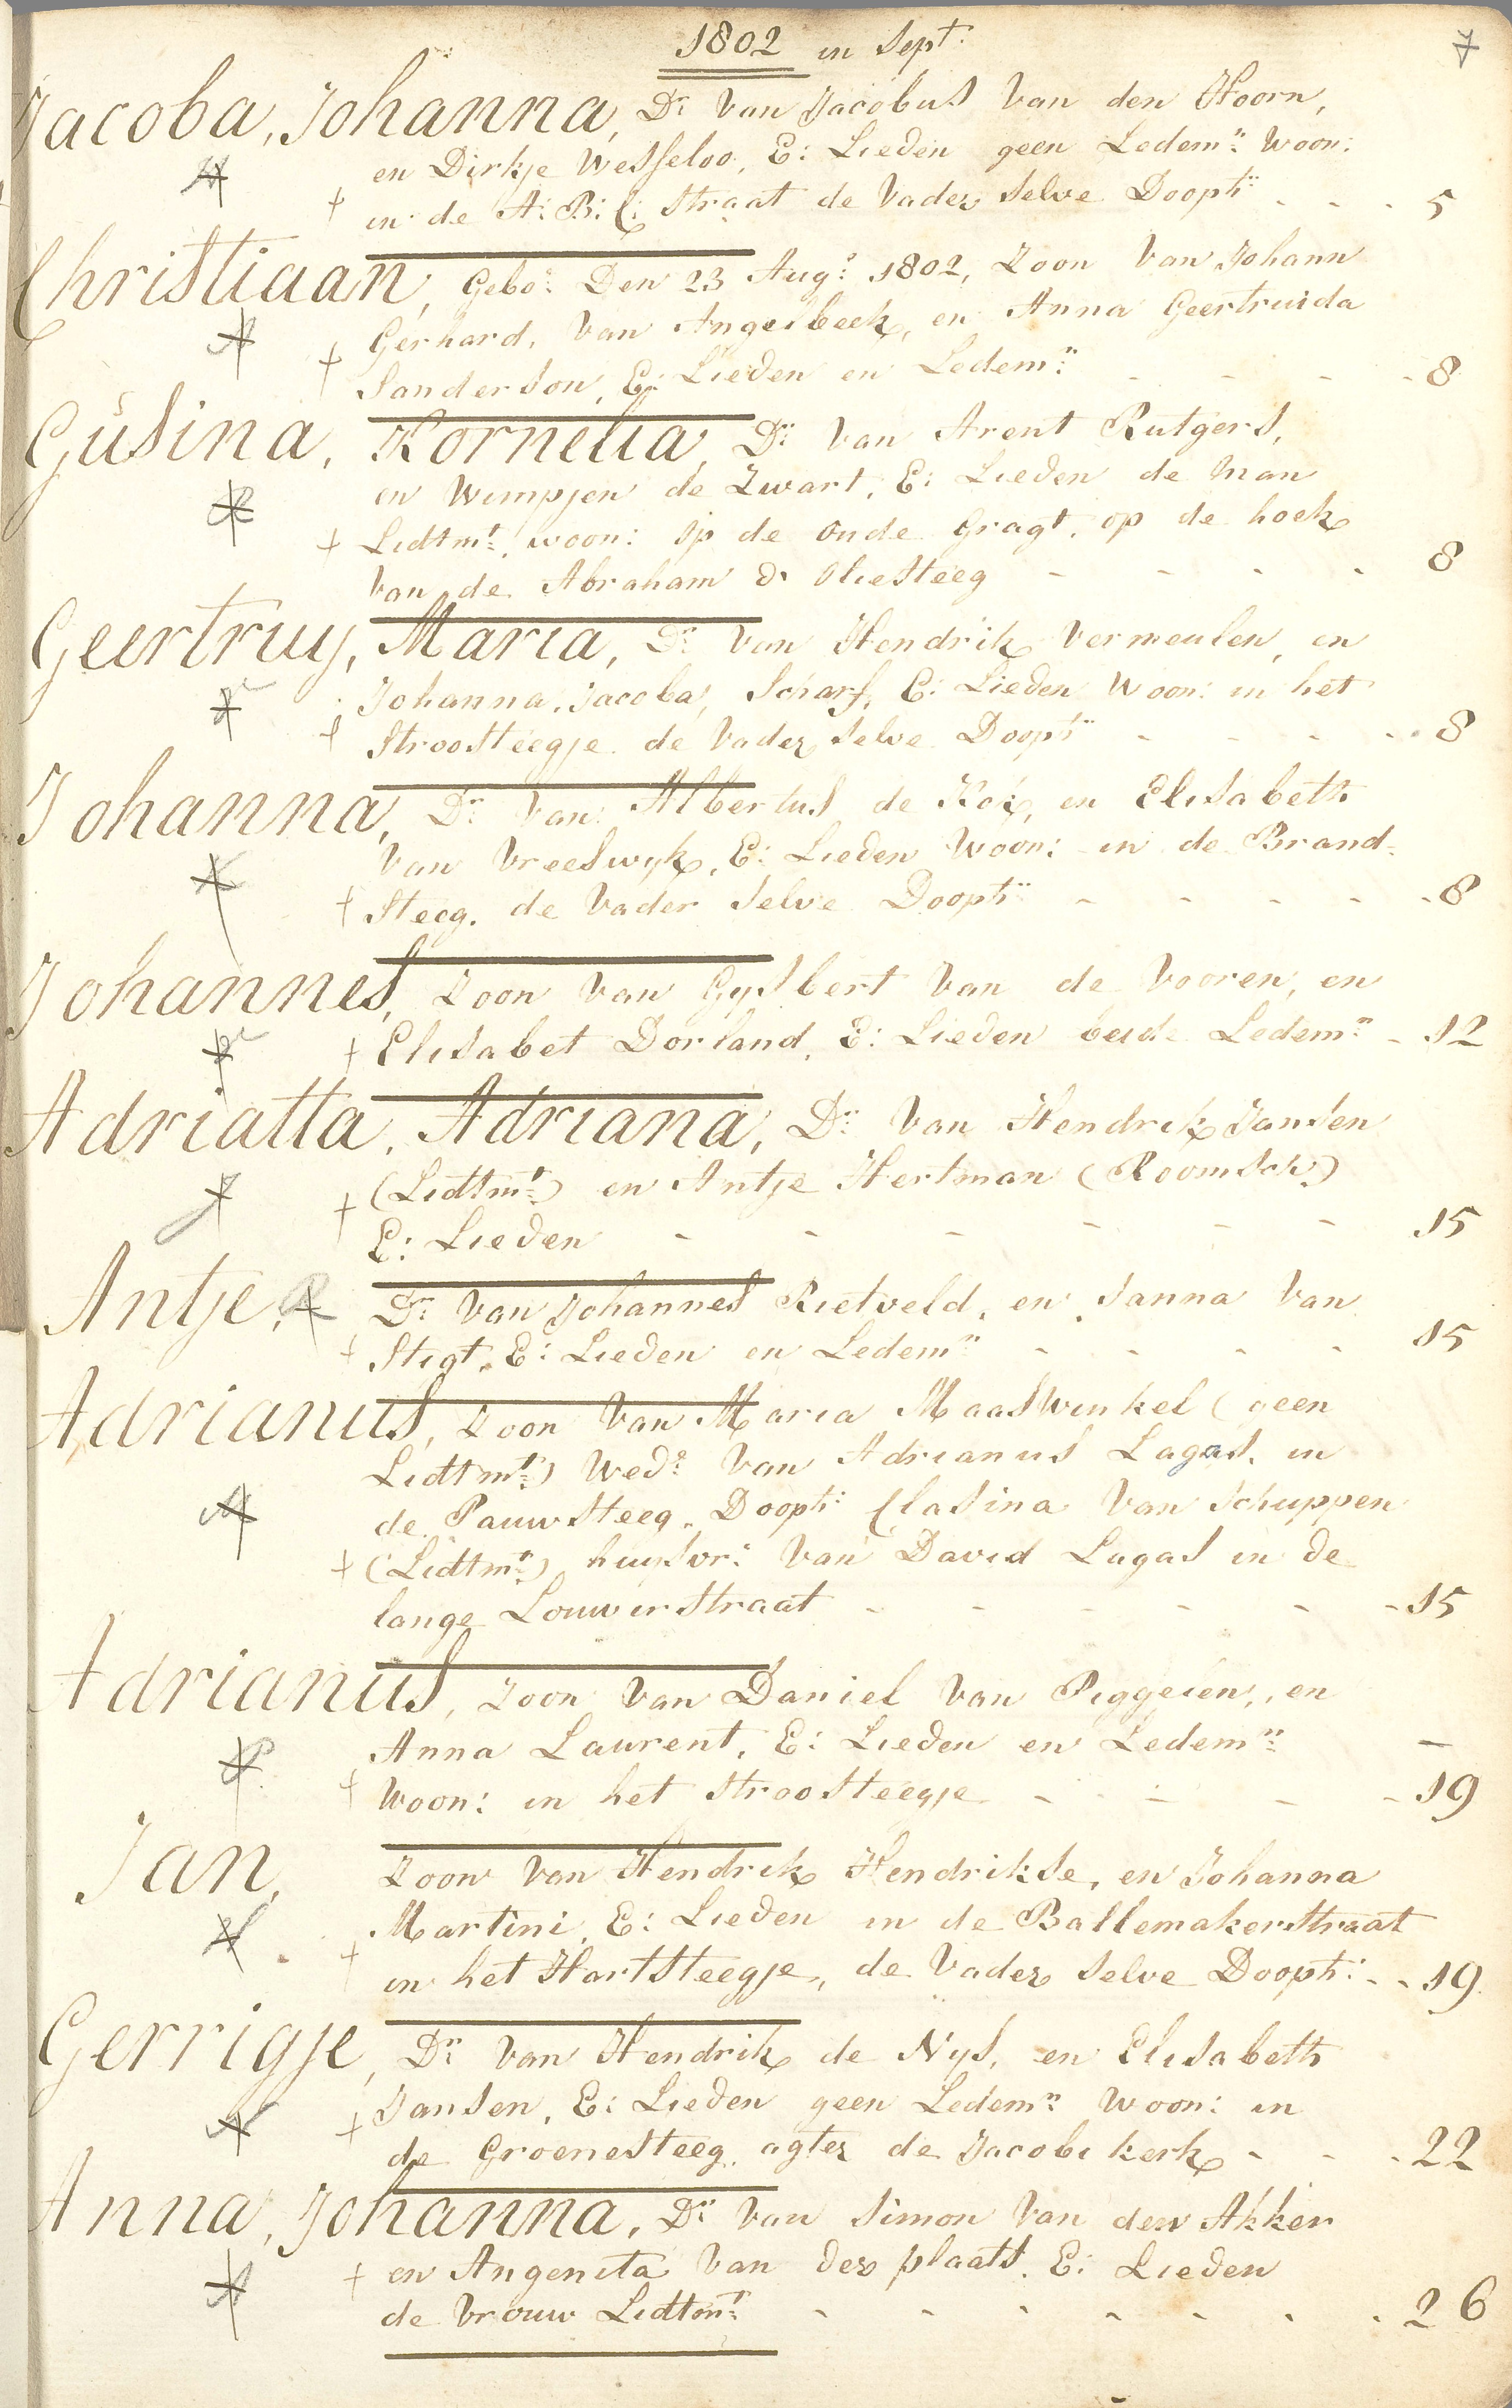 1802 in Sept:
7
Jacoba, Johanna, Dr: Van Jacobus Van den Hoorn,
en Dirkje Wesseloo, E: Lieden geen Ledemn: Woon:
in de A: B: C: Straat de Vader Selve Doopti: - - - 5
Christiaan, Gebo: Den 23 Aug: 1802, Zoon Van Johann
Gerhard, Van Angelbeek, en Anna Geertruida
Sanderson, E: Lieden en Ledemn: - - - - 8
Gusina, Kornelia, Dr: Van Arent Rutgers,
en Wimpjen de Zwart, E: Lieden de Man
Lidtmt: woon: op de Oude Gragt, op de hoek
Van de Abraham d. Oliesteeg - - - - 8
Geertruy, Maria, Dr: Van Hendrik Vermeulen, en
Johanna, Jacoba, Scharf, E: Lieden Woon: in het
Stroosteegje de Vader Selve Doopti: - - - - 8
Johanna, Dr: Van Albertus de Koi, en Elisabeth
Van Vreeswyk, E: Lieden Woon: in de Brand-
Steeg. de Vader Selve Doopti: - - - - - 8
Johannes, Zoon Van Gysbert Van de Vooren, en
Elisabet Dorland, E: Lieden beide Ledemn: - 12
Adriatta, Adriana, Dr: Van Hendrik Jansen
(Lidtmt:) en Antje Hertman (Roomsch)
E: Lieden - - - - - - 15
Antje, Dr: Van Johannes Rietveld, en Sanna Van
Stigt, E: Lieden en Ledemn: - - - - 15
Adrianus, Zoon Van Maria Maaswinkel (geen
Lidtmt:) Wed: Van Adrianus Lagas, in
de Pauwsteeg. Doopti: Clasina Van Schuppen
(Lidtmt:) huysvr: Van David Lagas in de
lange Louwerstraat - - - - - 15
Adrianus, Zoon Van Daniel Van Piggelen, en
Anna Laurent, E: Lieden en Ledemn: —
Woon: in het Stroosteegje - - - - 19
Jan, Zoon Van Hendrik Hendrikse, en Johanna
Martini, E: Lieden in de Ballemakerstraat
in het Hartsteegje, de Vader Selve Doopti: - - 19
Gerrigje, Dr: Van Hendrik de Nys, en Elisabeth
Jansen, E: Lieden geen Ledemn: Woon: in
de Groenesteeg agter de Jacobi kerk - - - 22
Anna, Johanna, Dr: Van Simon Van den Akker
en Angenita Van der plaats. E: Lieden
de Vrouw Lidtmt: - - - - - - - 26